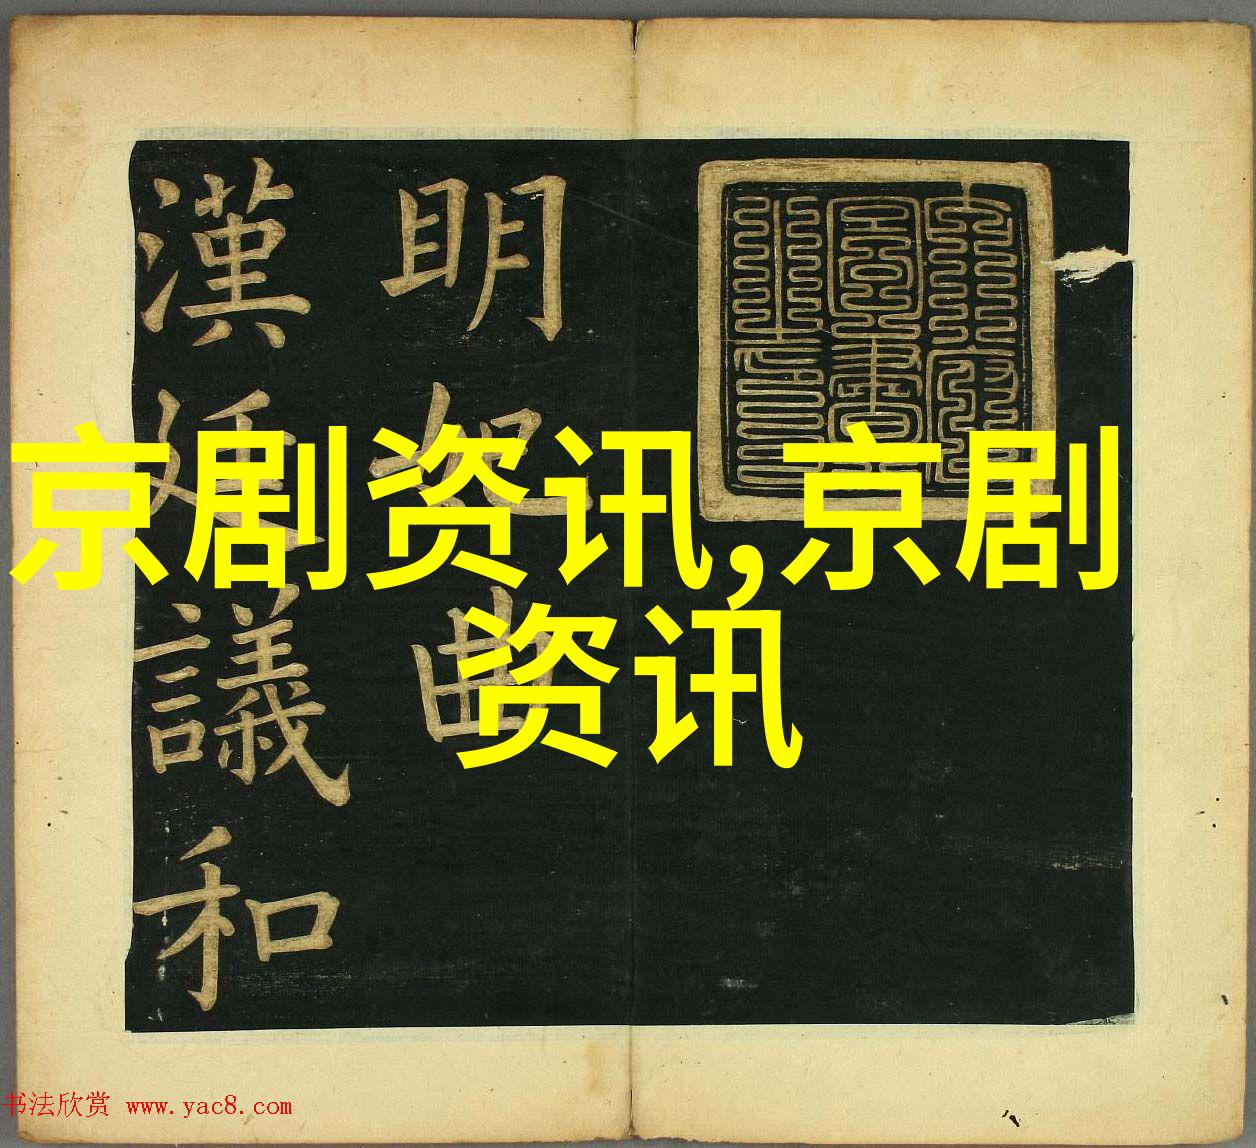 京剧资讯,京剧
资讯
眀妃曲
漢議和
书法欣赏 www.yac8.com